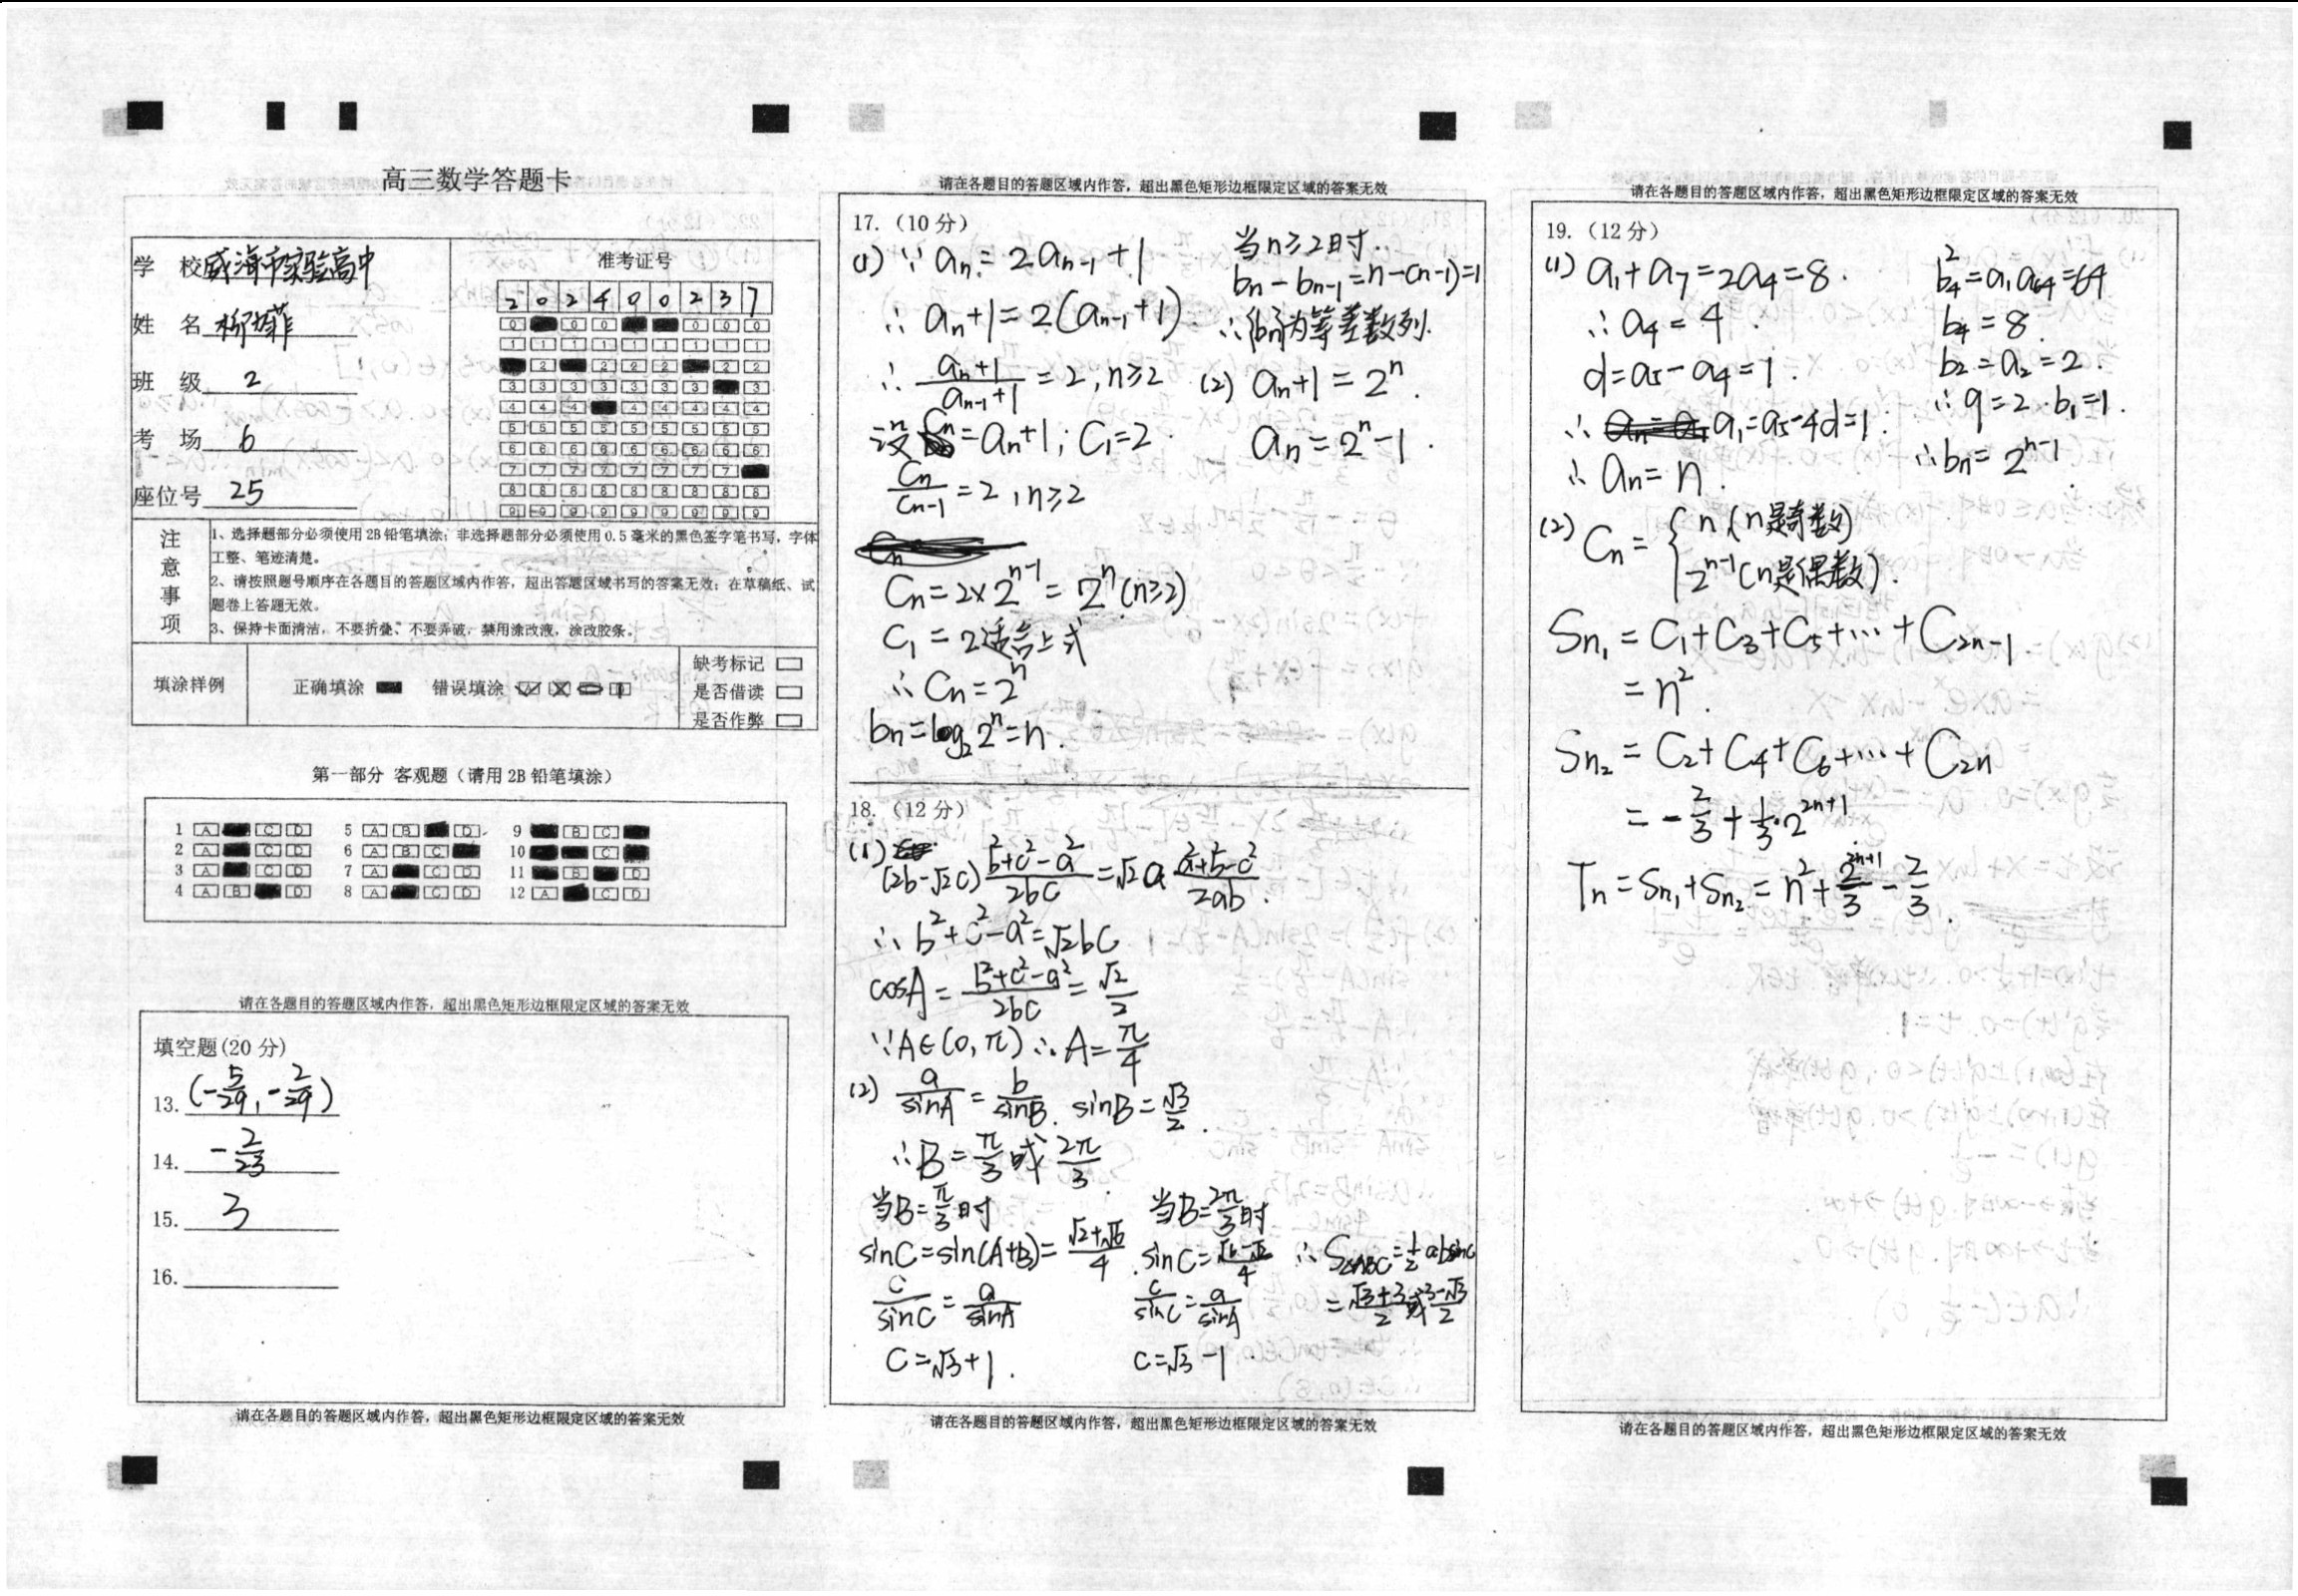 高三数学答题卡
学 校 威海市实验高中
姓 名
班 级 2
考 场 6
座位号 25
准考证号
2 0 2 4 0 0 2 3 7
注意事项
1、选择题部分必须使用2B铅笔填涂；非选择题部分必须使用0.5毫米的黑色签字笔书写，字体
工整、笔迹清楚。
2、请按照题号顺序在各题目的答题区域内作答，超出答题区域书写的答案无效；在草稿纸、试
题卷上答题无效。
3、保持卡面清洁，不要折叠、不要弄破，禁用涂改液，涂改胶条。
填涂样例
正确填涂 错误填涂
缺考标记
是否借读
是否作弊
第一部分 客观题（请用2B铅笔填涂）
1 A C D 5 A B D 9 B C
2 A C D 6 A B C 10 C
3 A C D 7 A C D 11 B D
4 A B D 8 A C D 12 A C D
请在各题目的答题区域内作答，超出黑色矩形边框限定区域的答案无效
填空题(20 分)
13. (-5/29, -2/29)
14. -2/23
15. 3
16.
请在各题目的答题区域内作答，超出黑色矩形边框限定区域的答案无效
请在各题目的答题区域内作答，超出黑色矩形边框限定区域的答案无效
17.（10 分）
(1) ∵ aₙ = 2aₙ₋₁ + 1
∴ aₙ+1 = 2(aₙ₋₁+1)
∴ (aₙ+1)/(aₙ₋₁+1) = 2, n≥2
设 Cₙ = aₙ+1; C₁=2
Cₙ/Cₙ₋₁ = 2, n≥2
Cₙ = 2×2ⁿ⁻¹ = 2ⁿ (n≥2)
C₁ = 2适合上式
∴ Cₙ = 2ⁿ
bₙ = log₂2ⁿ = n.
当n≥2时.
bₙ - bₙ₋₁ = n-(n-1)=1
∴{bₙ}为等差数列.
(2) aₙ+1 = 2ⁿ.
aₙ = 2ⁿ-1.
18.（12 分）
(1)
(2b-√2c) (b²+c²-a²)/2bc = √2a (a²+b²-c²)/2ab.
∴ b²+c²-a² = √2bc
cosA = (b²+c²-a²)/2bc = √2/2
∵A∈(0,π) ∴A = π/4
(2) a/sinA = b/sinB. sinB = √3/2.
∴B = π/3 或 2π/3.
当B=π/3时
sinC = sin(A+B) = (√2+√6)/4.
c/sinC = a/sinA
C = √3+1.
当B=2π/3时
sinC = (√6-√2)/4
c/sinC = a/sinA
C = √3-1
∴ S△ABC = 1/2 absinC
= (√3+3)/2 或 (3-√3)/2
请在各题目的答题区域内作答，超出黑色矩形边框限定区域的答案无效
请在各题目的答题区域内作答，超出黑色矩形边框限定区域的答案无效
19.（12 分）
(1) a₁+a₇ = 2a₄ = 8.
∴ a₄ = 4.
d = a₅-a₄ = 1.
∴ a₁ = a₅-4d = 1.
∴ aₙ = n.
b₄² = a₁a₆₄ = 64
b₄ = 8.
b₂ = a₂ = 2.
∴ q = 2. b₁ = 1.
∴ bₙ = 2ⁿ⁻¹.
(2) Cₙ = { n (n是奇数)
2ⁿ⁻¹ (n是偶数).
Sₙ₁ = C₁+C₃+C₅+⋯+C₂ₙ₋₁
= n².
Sₙ₂ = C₂+C₄+C₆+⋯+C₂ₙ
= -2/3 + 1/3·2²ⁿ⁺¹
Tₙ = Sₙ₁+Sₙ₂ = n² + 2²ⁿ⁺¹/3 - 2/3.
请在各题目的答题区域内作答，超出黑色矩形边框限定区域的答案无效